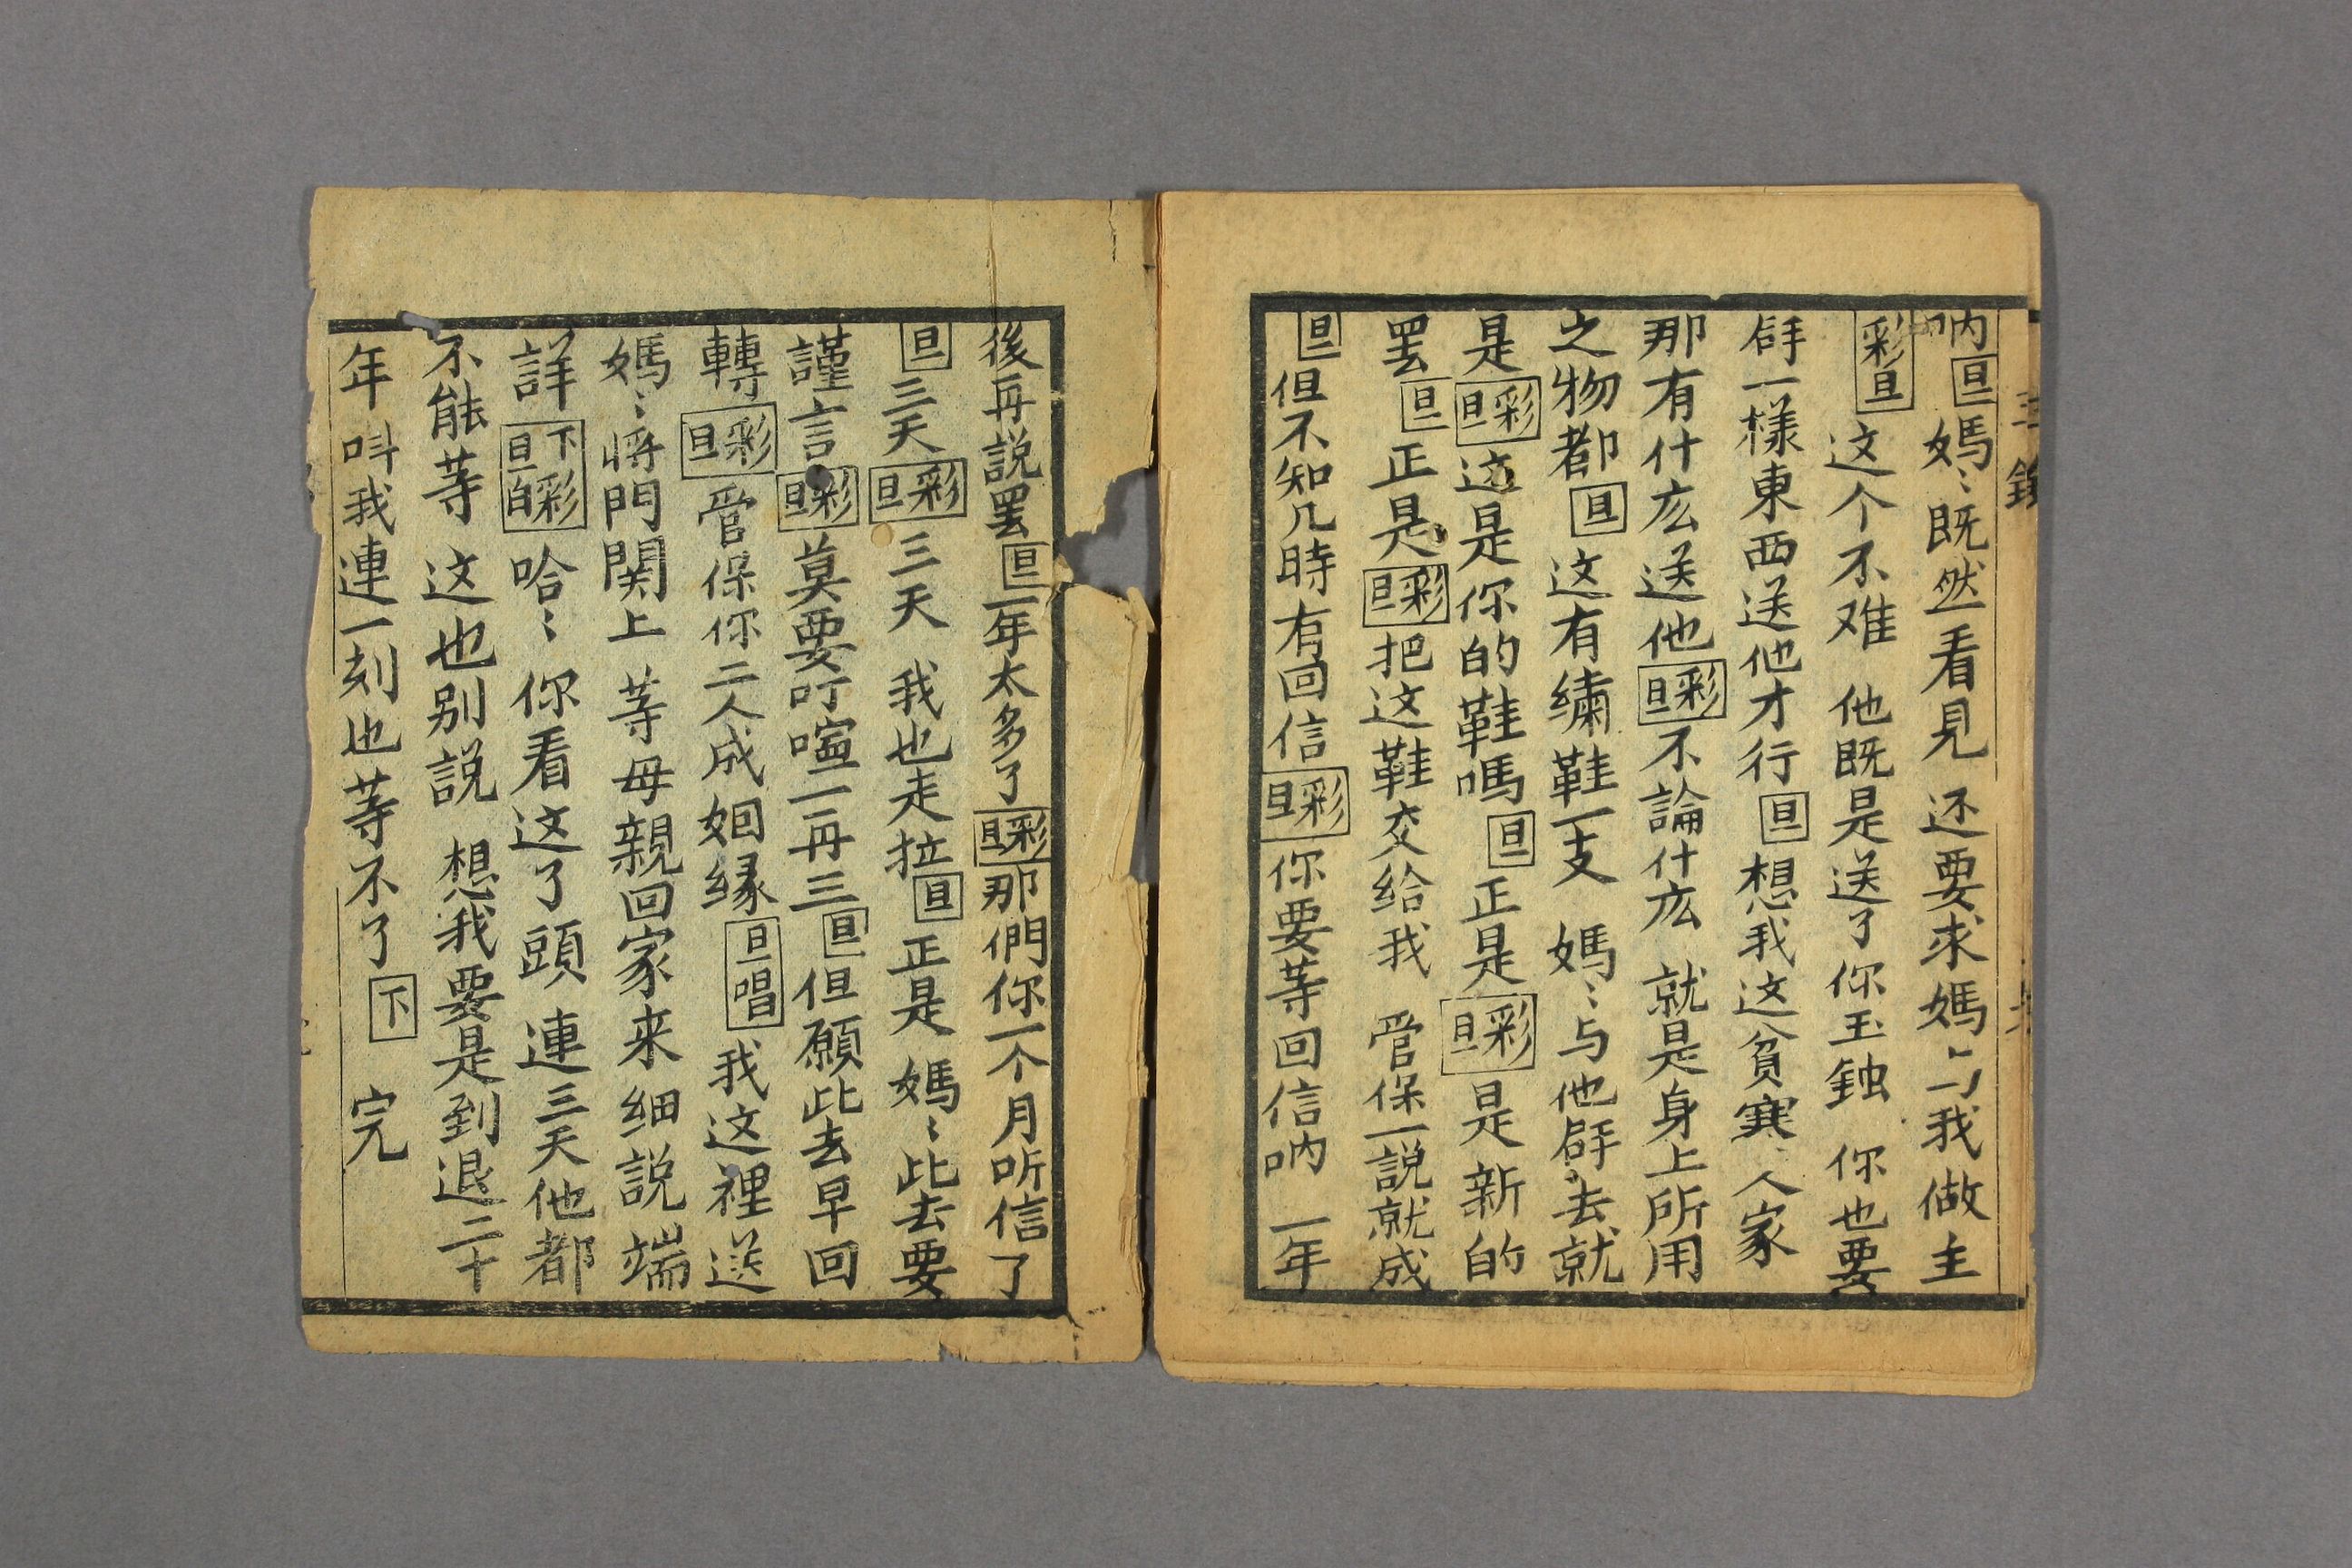 呐旦媽〻既然看見还要求媽〻与我做主
彩旦这个不难他既是送了你玉鈾你也要
辟一樣東西送他才行旦想我这貧寒人家
那有什広送他彩旦不論什広就是身上所用
之物都旦这有繡鞋一支媽〻与他辟去就
是彩旦这是你的鞋嗎旦正是彩旦是新的
罢旦正是彩旦把这鞋交给我管保一説就成
旦但不知几時有回信彩旦你要等回信呐一年
後再説罢旦一年太多了彩旦那們你一个月听信了
旦三天彩旦三天我也走拉旦正是媽〻此去要
謹言彩旦莫要叮嚀一再三旦但願此去早回
轉彩旦管保你二人成姻缘旦唱我这裡送
媽〻将門関上等母親回家来细説端
詳下彩旦白哈〻你看这了頭連三天他都
不能等这也别説想我要是到退二十
年叫我連一刻也等不了下完